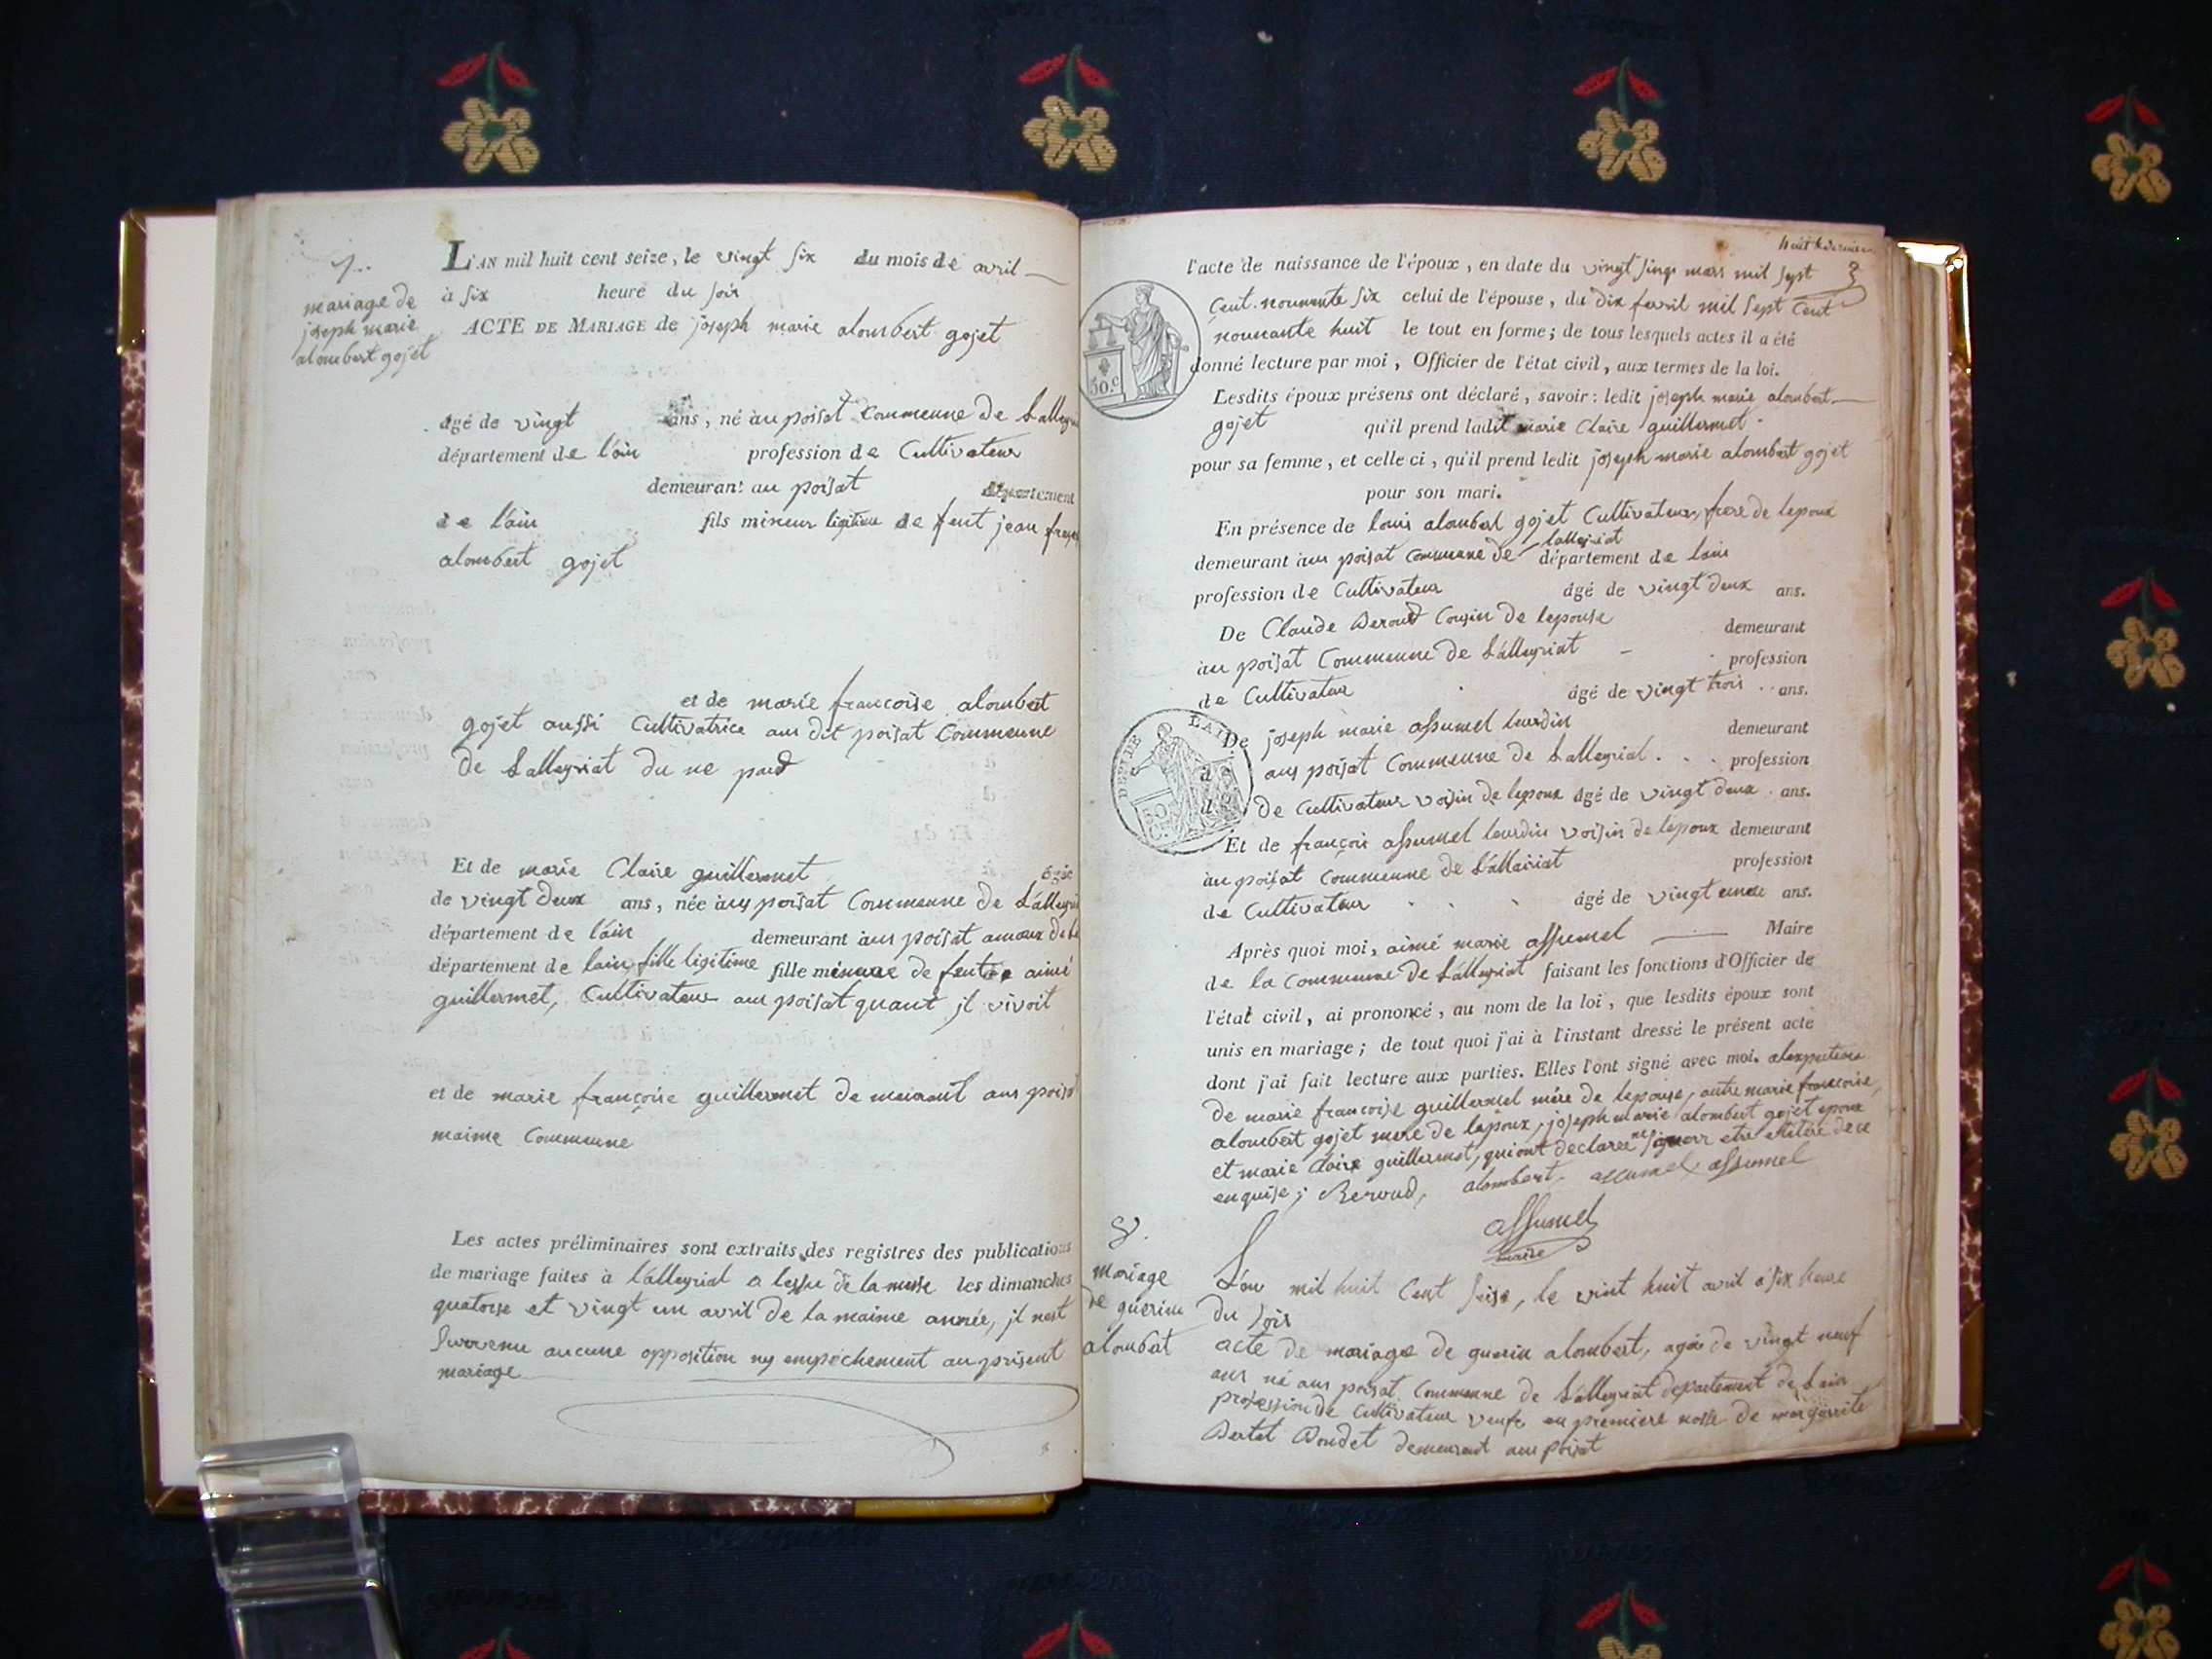 7..
mariage de
joseph marie
alombert gojet
L'AN mil huit cent seize, le vingt six du mois de avril
à six heure du soir
ACTE DE MARIAGE de joseph marie alombert gojet
âgé de vingt ans, né au poisat Commeune de
département de l'ain profession de Cultivateur
demeurant au poisat département
de l'ain fils mineur ligitime de feut jean
alombert gojet
et de marie francoise alombert
gojet aussi Cultivatrice aus dit poisat Commeune
de Lalleyriat du ne part
Et de marie Claire guillermet âgée
de vingt deux ans, née aus poisat Commeune de
département de l'ain demeurant aus poisat
département de lain, fille ligitime fille mineure de aimé
guillermet, Cultivateur aus poisat quant jl vivoit
et de marie françoise guillermet de meurant aus
maime Commeune
Les actes préliminaires sont extraits des registres des publications
de mariage faites à lalleyriat a de la messe les dimanches
quatorse et vingt un avril de la maime année, jl nest
Survenu aucune opposition ny empechement au présent
mariage
l'acte de naissance de l'époux, en date du vingt mars mil sept
Cent nounante six celui de l'épouse, du dix mil sept Cent
nounante huit le tout en forme; de tous lesquels actes il a été
donné lecture par moi, Officier de l'état civil, aux termes de la loi.
50.c
Lesdits époux présens ont déclaré, savoir: ledit joseph marie alombert
gojet qu'il prend ladit marie Claire guillermet
pour sa femme, et celle ci, qu'il prend ledit joseph marie alombert gojet
pour son mari.
En présence de louis alombert gojet Cultivateur, frere de lepoux
lalleyriat
demeurant aus poisat commune de département de lain
profession de Cultivateur âgé de vingt deux ans.
De Claude Beroud Cousin de lepouse demeurant
au poisat Commeune de Lalleyriat profession
de Cultivateur âgé de vingt trois ans.
De joseph marie assumel lurdin demeurant
aus poisat Commeune de Lalleyriat profession
de Cultivateur voisin de lepoux âgé de vingt deux ans.
Et de françois assumel lurdin voisin de lepoux demeurant
au poisat Commeune de profession
de Cultivateur âgé de vingt ans.
Après quoi moi, aimé marie assumel Maire
de la Commeune de Lalleyriat faisant les fonctions d'Officier de
l'état civil, ai prononcé, au nom de la loi, que lesdits époux sont
unis en mariage; de tout quoi j'ai à l'instant dressé le présent acte
dont j'ai fait lecture aux parties. Elles l'ont signé avec moi.
de marie francoise guillermet mére de lepouse, autre marie francoise,
alombert gojet mere de lepoux, joseph marie alombert gojet epoux
et marie Claire guillermet, qui ont declarer ne de ce
enquise; Beroud, alombert, assumel assumel
assumel
maire
8.
mariage
de guerin
alombert
L'an mil huit Cent seise, le vint huit avril a six heure
du soir
acte de mariage de guerin alombert, agée de vingt neuf
ans né aus poisat Commeune de Lalleyriat departement de Lain
profession de Cultivateur veufe en premiere nosse de margarrite
demeurant aus poisat